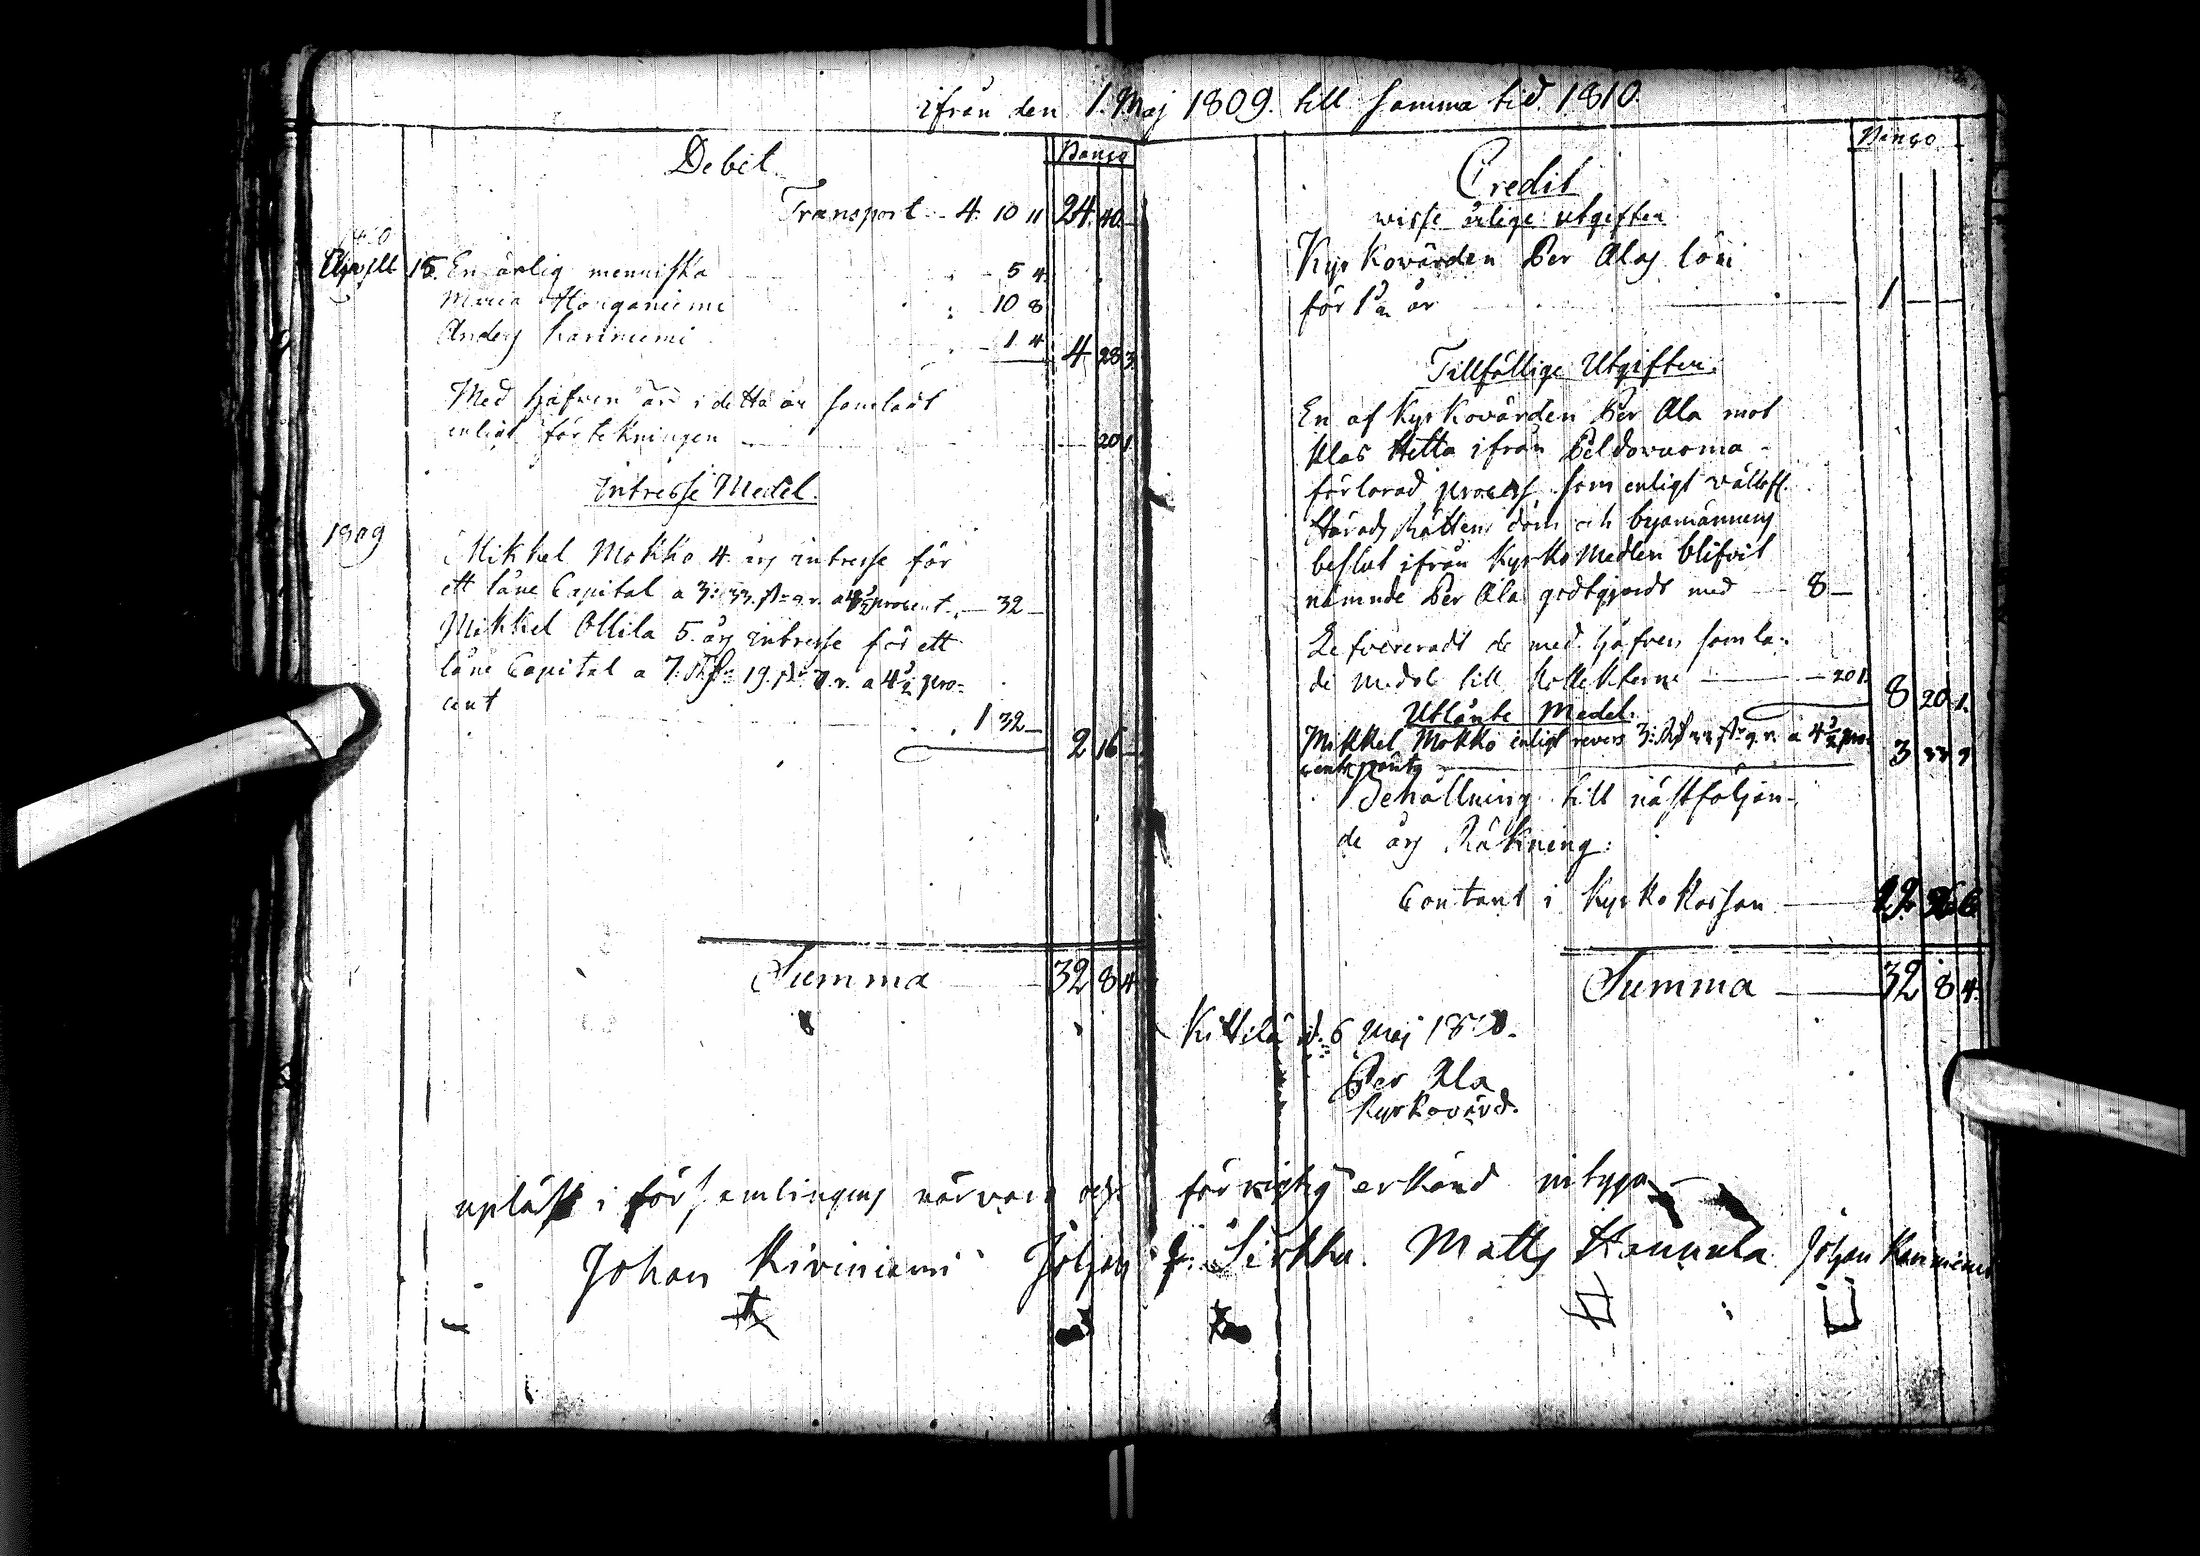 ifrån den 1. Maj 1809. till samma tid. 1810.
Debet. Banco
Transport 4. 10 11 24. 40.
1810
April 15. En ärlig menniska 5 4
Maria Honganiemi 10 8
Anders Kariniemi 1 4 4 28 3
Med Håfven är i detta år samladt
enligt förtekningen 20 1
Intresse Medel.
1809
Mikkel Mokko 4 års intresse för
ett låne Capital a 3: 33. sk: 9. r. a 4 1/2 procent 32
Mikkel Ollila 5. års intresse för ett
låne Capital a 7. Rd: 19. sk: 7. r. a 4 1/2 pro=
cent
1 32 2 16
Summa 32 8 4
Banco
Credit
wisse årlige utgifter
Kyrkovärden Per Alas lön
för 1 år 1
Tillfällige Utgifter.
En af Kyrkovärden Per Ala mot
Klas Hetta ifrån Peldovuoma
förlorad process, som enligt
Härads Rättens dom och byamännens
beslut ifrån Kyrko Medlen blifvit
nämnde Per Ala godtgjordt med 8
Lefvereradt de med håfven samla-
de Medel till Kollekterne 20 1. 8 20 1.
Utlånte Medel.
Mikkel Mokko enligt revers 3: Rd 33 sk 9. r. a 4 1/2 pro- 3 33 9
Behållning till nästföljan-
de års Räkning:
Contant i Kyrko Kassan 36 6
Summa 32 8 4.
Kittilä d. 6 Maj 1810.
Per Ala
Kyrkovärd.
upläst i församlingens närvaro och för richtig erkänd intyga
Johan Kiviniemi Johan Sirkka. Matts Hannula Johan Kariniemi